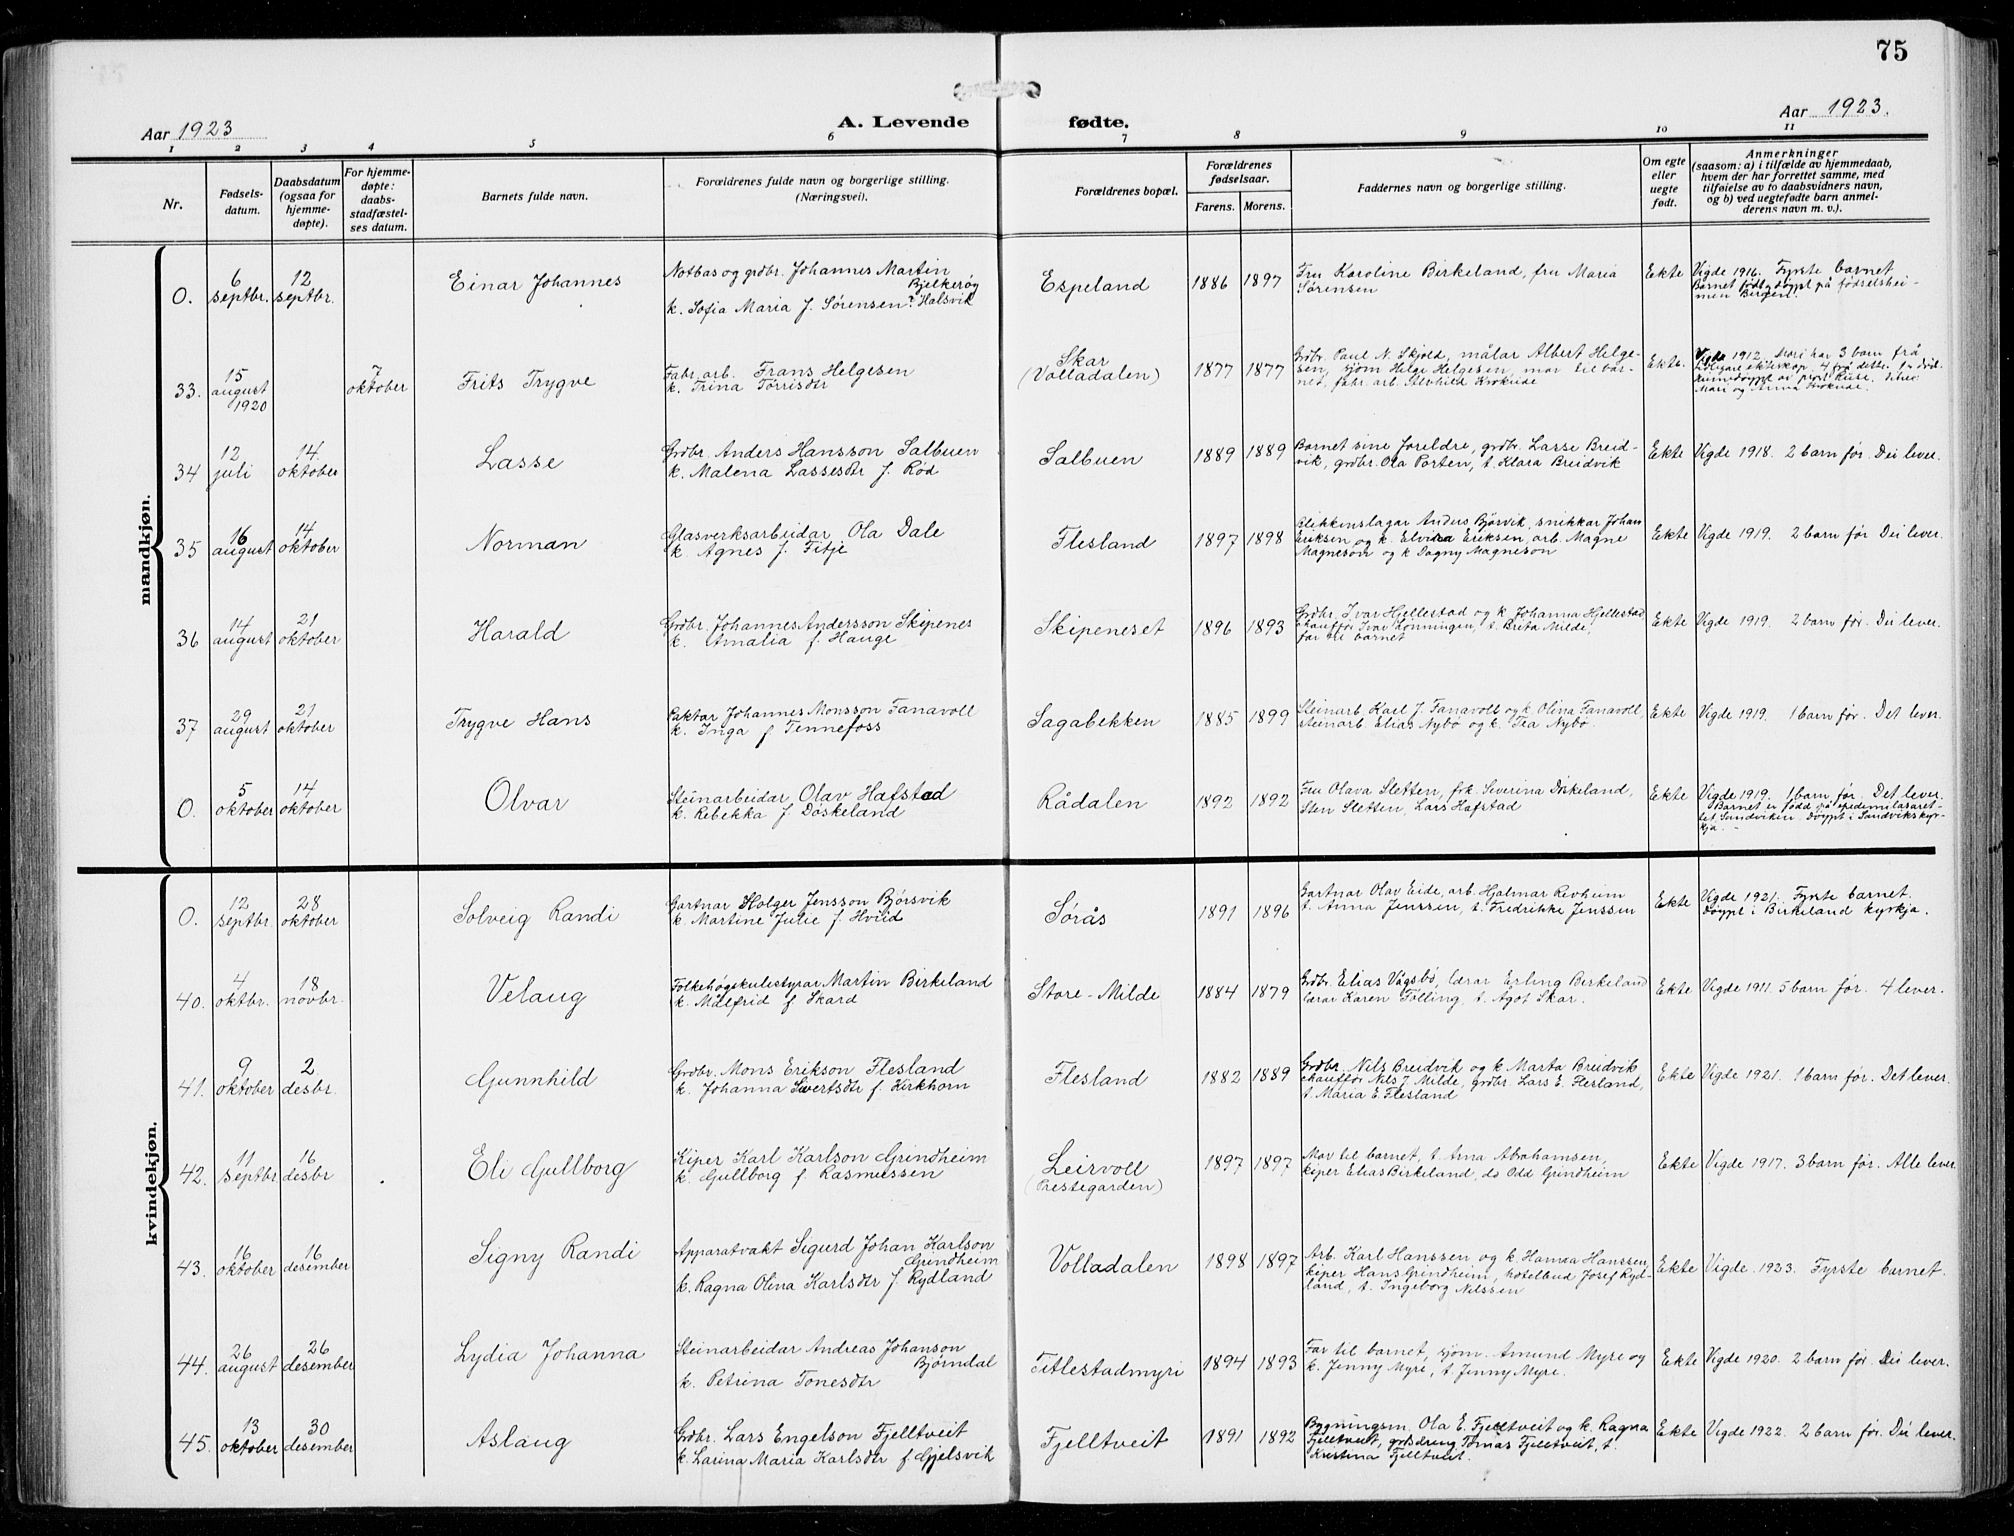 75
Aar 1923
A. Levende fødte.
Aar 1923.
1 2 3 4 5 6 7 8 9 10 11
Nr.
Fødsels-
datum.
Daabsdatum
(ogsaa for
hjemme-
døpte).
For hjemme-
døpte:
daabs-
stadfæstel-
ses datum.
Barnets fulde navn.
Forældrenes fulde navn og borgerlige stilling.
(Næringsvei).
Forældrenes bopæl.
Forældrenes
fødselsaar.
Farens. Morens.
Faddernes navn og borgerlige stilling.
Om egte
eller
uegte
født.
Anmerkninger
(saasom: a) i tilfælde av hjemmedaab,
hvem der har forrettet samme, med
tilføielse av to daabsvidners navn,
og b) ved uegtefødte barn anmel-
derens navn m. v.).
mandkjøn.
O.
6
septbr.
12
septbr.
Einar Johannes
Notbas og grdbr. Johannes Martin
Bjelkerøy
k. Sofia Maria f. Sørensen Halsvik
Espeland
1886 1897
Fru Karoline Birkeland, fru Maria
Sørensen
Ekte
Vigde 1916. Fyrste barnet
Barnet født og døypt på fødselshei-
men Bergen.
33.
15
august
1920
7
oktober
Frits Trygve
Fabr. arb. Frans Helgesen
k. Trina Torrisdtr
Skar
(Volladalen)
1877 1877
Grdbr. Paul N. Skjold, målar Albert Helge-
sen, sjøm Helge Helgesen, mor til bar-
net, fabr. arb. Krokeide
Ekte.
Vigde 1912. Mori har 3 barn frå
ekteskap 4 frå dette. 1 død.
Heimedøypt av
Mari og Anna Krokeide.
34
12
juli
14.
oktober
Lasse
Grdbr. Anders Hansson Salbuen
k. Malena Lassesdtr f. Rød
Salbuen
1889 1889
Barnet sine foreldre, grdbr. Lasse Breid-
vik, grdbr. Ola Porten, t. Klara Breidvik
Ekte
Vigde 1918. 2 barn før. Dei lever.
35
16
august
14
oktober
Norman
Glasverksarbeidar Ola Dale
k. Agnes f. Fitje
Flesland
1897 1898
Blikkenslagar Anders Bjørvik, snikkar Johan
Eriksen og k. Elvira Eriksen, arb. Magne
Magneson og k Dagny Magneson
Ekte
Vigde 1919. 2 barn før Dei lever.
36
14
august
21
oktober
Harald
Grdbr. Johannes Andersson Skipenes
k. Amalia f. Hauge
Skipeneset
1896 1893
Grdbr. Ivar Hjellestad og k. Johanna Hjellestad
chauffør Ivar Rønningen, t. Brita Milde,
far til barnet
Ekte
Vigde 1919. 2 barn før. Dei lever.
37
29
august
21
oktober
Trygve Hans
Paktar Johannes Monsson Fanavoll
k. Inga f Tennefoss
Sagabekken
1885 1899
Steinarb. Karl J. Fanavoll og k Olina Fanavoll,
steinarb. Elias Nybø og k. Tea Nybø.
Ekte
Vigde 1919. 1 barn før. Det lever.
O.
5
oktober
14
oktober
Olvar
Steinarbeidar Olav Hafstad
k. Rebekka f. Døskeland
Rådalen
1892 1892
Fru Olava Sletten, frk. Severina Døskeland,
Sten Sletten, Lars Hafstad
Ekte
Vigde 1919. 1 barn før. Det lever.
Barnet er fødd på epidemilasaret-
tet Sandviken. Døypt i Sandvikskyr-
kja.
kvindekjøn.
O.
12
septbr.
28
oktober
Solveig Randi
Gartnar Holger Jensson Bjørsvik
k. Martine Julie f. Hviid
Sørås
1891 1896
Gartnar Olav Eide, arb. Hjalmar Revheim
t. Anna Jenssen, t. Fredrikke Jenssen
Ekte
Vigde 1921. Fyrste barnet.
Døypt i Birkeland kyrkja.
40.
4
oktbr.
18
novbr.
Velaug
Folkehøgskulestyrar Martin Birkeland
k. Målfrid f. Skard
Store-Milde
1884 1879
Grdbr. Elias Vågsbø, lærar Erling Birkeland
lærar Karen Tølling, t. Agot Skar.
Ekte
Vigde 1911. 5 barn før. 4 lever.
41.
9
oktober
2
desbr.
Gunnhild
Grdbr. Mons Erikson Flesland
k. Johanna Sivertsdtr f. Kirkhorn
Flesland
1882 1889
Grdbr. Nils Breidvik og k Marta Breidvik
chauffør Nils J. Milde, grdbr. Lars E. Flesland,
t. Maria E. Flesland
Ekte
Vigde 1921. 1 barn før. Det lever.
42.
11
septbr
16
desbr
Eli Gullborg
Kiper Karl Karlson Grindheim
k. Gullborg f. Rasmussen
Leirvoll
(Prestegarden)
1897 1897
Mor til barnet, t. Arna Abrahamsen,
kiper Elias Birkeland, do Odd Grindheim
Ekte
Vigde 1917. 3 barn før. Alle lever.
43.
16
oktober
16
desember
Signy Randi
Apparatvakt Sigurd Johan Karlson
Grindheim
k. Ragna Olina Karlsdtr f. Rydland
Volladalen
1898 1897
Arb. Karl Hanssen og k. Hanna Hanssen,
kiper Hans Grindheim, hotelbud Josef Ryd-
land, t. Ingeborg Nilssen
Ekte
Vigde. 1923. Fyrste barnet.
44.
26
august
26
desember
Lydia Johanna
Steinarbeidar Andreas Johanson
Bjørndal
k. Petrina Tonesdtr
Titlestadmyri
1894 1893
Far til barnet, sjøm. Amund Myre og
k. Jenny Myre, t. Jenny Myre.
Ekte
Vigde 1920. 2 barn før. Dei lever.
45.
13
oktober
30
desember
Aslaug
Grdbr. Lars Engelson Fjelltveit
k. Larina Maria Karlsdtr f. Gjelsvik
Fjelltveit
1891 1892
Bygningsm. Ola E. Fjelltveit og k. Ragna
Fjelltveit, gardsdreng Tomas Fjelltveit, t.
Kristina Fjelltveit.
Ekte
Vigde 1922. 2 barn før. Dei lever.